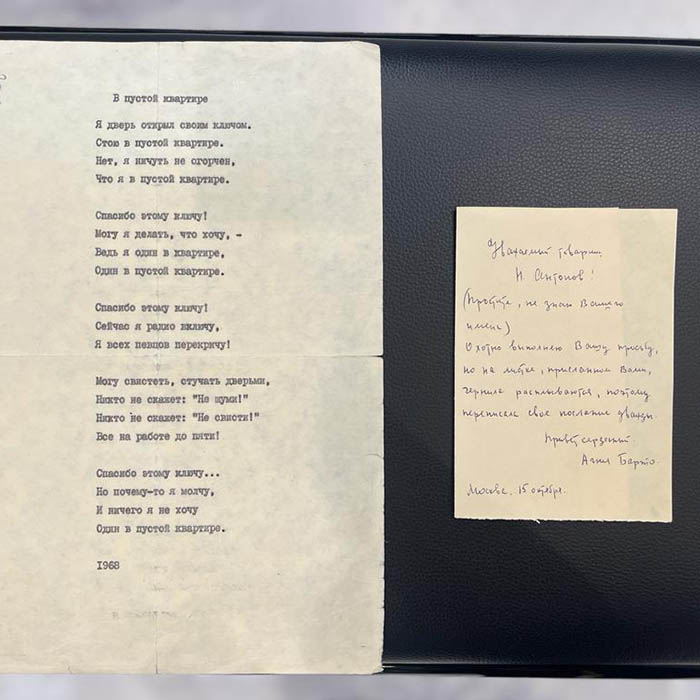 В пустой квартире
Я дверь открыл своим ключом.
Стою в пустой квартире.
Нет, я ничуть не огорчен,
Что я в пустой квартире.
Спасибо этому ключу!
Могу я делать, что хочу, -
Ведь я один в квартире,
Один в пустой квартире.
Спасибо этому ключу!
Сейчас я радио включу,
Я всех певцов перекричу!
Могу свистеть, стучать дверьми,
Никто не скажет: "Не шуми!"
Никто не скажет: "Не свисти!"
Все на работе до пяти!
Спасибо этому ключу...
Но почему-то я молчу,
И ничего я не хочу
Один в пустой квартире.
1968
Уважаемый товарищ
Н. Антонов!
(Простите, не знаю Вашего
имени)
Охотно выполняю Вашу просьбу,
но на листке, присланном Вами,
чернила расплываются, поэтому
переписала свое послание дважды.
Привет сердечный
Агния Барто.
Москва. 15 октября.